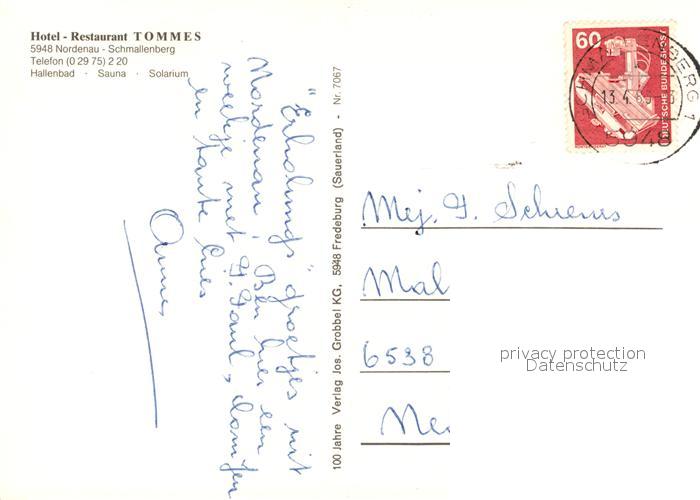 Hotel - Restaurant TOMMES
5948 Nordenau - Schmallenberg
Telefon (0 29 75) 2 20
Hallenbad · Sauna · Solarium
"Erholungs" groetjes uit
Nordenau! Ben hier een
weekje met
en tante
100 Jahre Verlag Jos. Grobbel KG, 5948 Fredeburg (Sauerland) - Nr. 7067
60
DEUTSCHE BUNDESPOST
13.4.
5948
Mej. J.
Mal
6538
privacy protection
Datenschutz